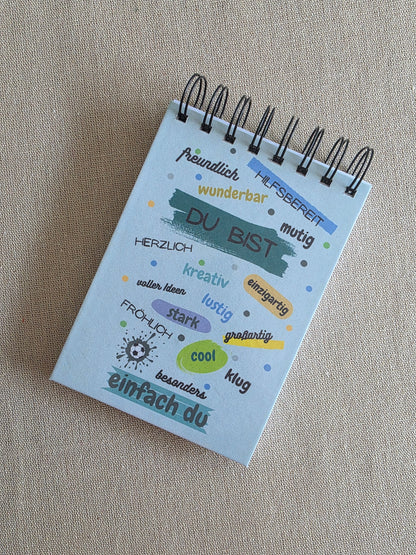 freundlich
HILFSBEREIT
wunderbar
DU BIST
mutig
HERZLICH
kreativ
einzigartig
voller Ideen
lustig
FRÖHLICH
stark
großartig
cool
klug
besonders
einfach du